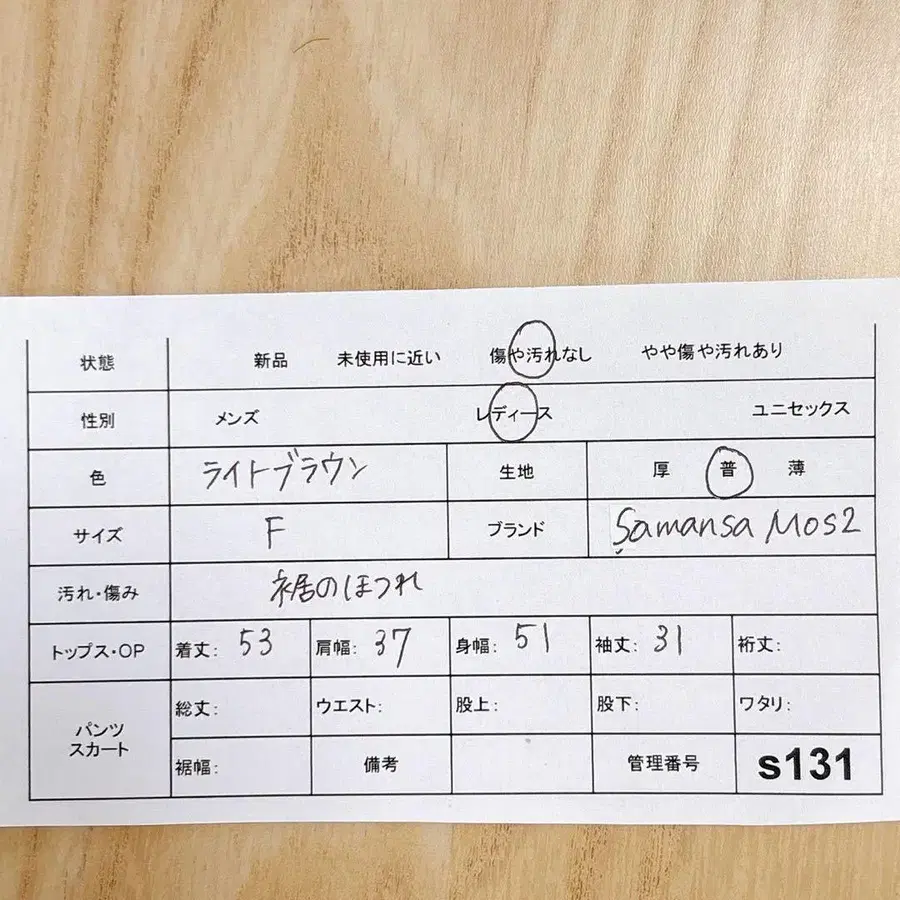 状態 新品 未使用に近い 傷や汚れなし やや傷や汚れあり
性別 メンズ レディース ユニセックス
色 ライトブラウン 生地 厚 普 薄
サイズ F ブランド Samansa Mos2
汚れ・傷み 裾のほつれ
トップス・OP 着丈: 53 肩幅: 37 身幅: 51 袖丈: 31 裄丈:
パンツ スカート 総丈: ウエスト: 股上: 股下: ワタリ:
裾幅: 備考 管理番号 s131